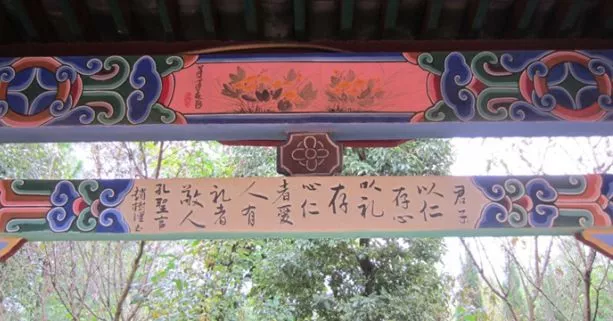 君子
以仁
存心
以礼
存
心仁
者愛
人有
礼者
敬人
孔聖言